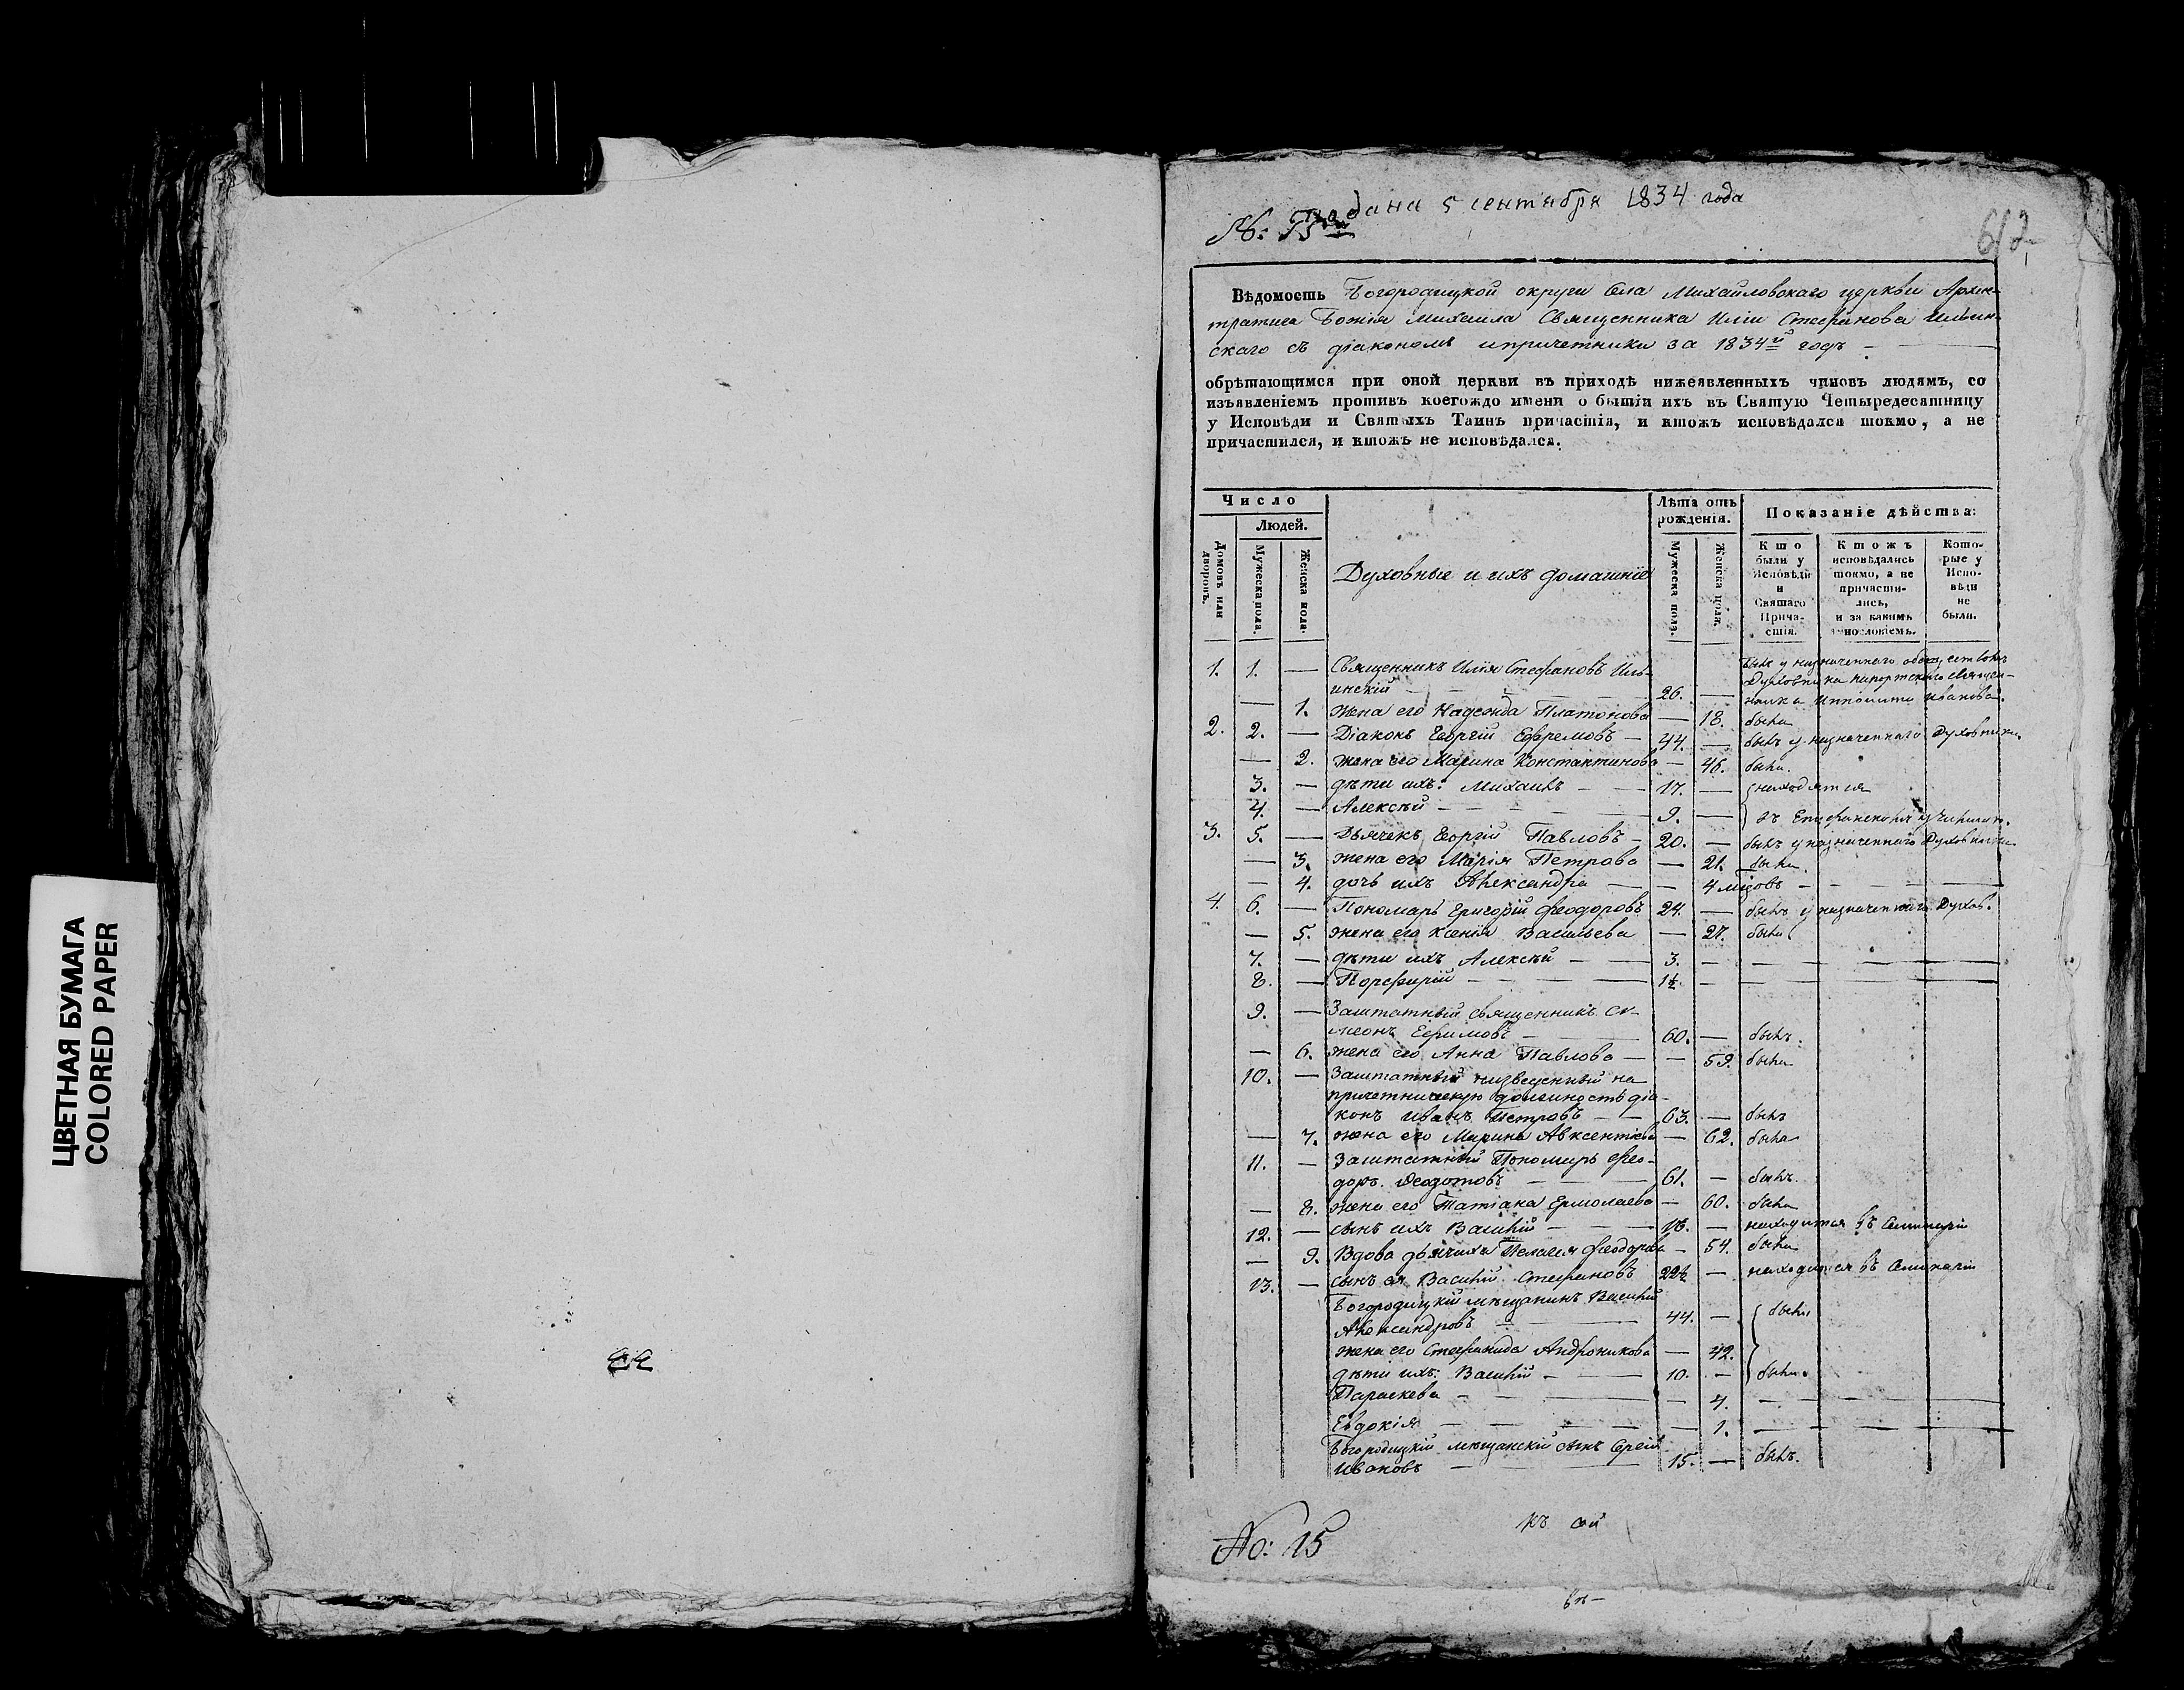 ЦВЕТНАЯ БУМАГА
COLORED PAPER
Подана 5 сентября 1834 года
№:
617
Вѣдомость Богородицкой округи Села Михайловскаго церкви Архис-
тратига Божія Михаила Священника Иліи Стефанова Ильин-
скаго съ діакономъ и причетники за 1834й годъ —
обрѣтающимся при оной церкви въ приходѣ нижеявленныхъ чиновъ людямъ, со
изъявленіемъ противъ коегождо имени о бытіи ихъ въ Святую Четыредесятницу
у Исповѣди и Святыхъ Таинъ причастія, и ктожъ исповѣдался токмо, а не
причастился, и ктожъ не исповѣдался.
Число
Людей.
Домовъ или дворовъ.
Мужеска пола.
Женска пола.
Духовные и ихъ домашніе
Лѣта отъ рожденія.
Мужеска пола.
Женска пола.
Показаніе дѣйства:
Кто были у Исповѣди и Святаго Прича- стія.
Ктожъ исповѣдались токмо, а не причасти- лись, и за какимъ винословіемъ.
Кото- рые у Испо- вѣди не были.
1. 1. — Священникъ Илія Стефановъ Иль-
инскій — 26. —
былъ у назначеннаго
Духовника священ-
ника Иванова.
— 1. Жена его Надежда Платонова — 18. была
2. 2. — Діаконъ Георгій Ефремовъ — 44. — былъ у назначеннаго Духовника.
— 2. жена его Марина Константинова — 46. была.
3. — дѣти ихъ: Михаилъ — 17. — находятся
4. — Алексѣй — 9. — въ Епифанскомъ училищѣ.
3. 5. — Дьячекъ Георгій Павловъ — 20. — былъ у назначеннаго Духовника
— 3. жена его Марія Петрова — 21. была.
— 4. дочь ихъ Александра — 4 мцовъ —
4. 6. — Пономарь Григорій Феодоровъ 24. — былъ у назначеннаго Духов.
— 5. жена его Ксенія Васильева — 27. была
7. — дѣти ихъ Алексѣй — 3. —
8. — Порфирій — 1½. —
9. — Заштатный священникъ Си-
меонъ Ефимовъ — 60. — былъ.
— 6. жена его Анна Павлова — 59. была
10. — Заштатный низведенный на
причетническую должность діа-
конъ Иванъ Петровъ — 63. — былъ
— 7. жена его Марина Авксентіева — 62. была
11. — Заштатный Пономарь Фео-
доръ Феодотовъ — 61. — былъ.
— 8. жена его Татіана Ермолаева — 60. была
12. — сынъ ихъ Василій — 18. — находится въ Семинаріи
— 9. Вдова дьячиха Пелагея Феодорова — 54. была
13. — сынъ ея Василій Стефановъ 22½ — находится въ Семинаріи
Богородицкій мѣщанинъ Василій
Александровъ — 44. — были
жена его Стефанида Андроникова — 42.
дѣти ихъ: Василій — 10. — были.
Параскева — 4. —
Евдокія — 1. —
Богородицкій мѣщанскій сынъ Сергій
Ивановъ — 15. — былъ.
No: 15